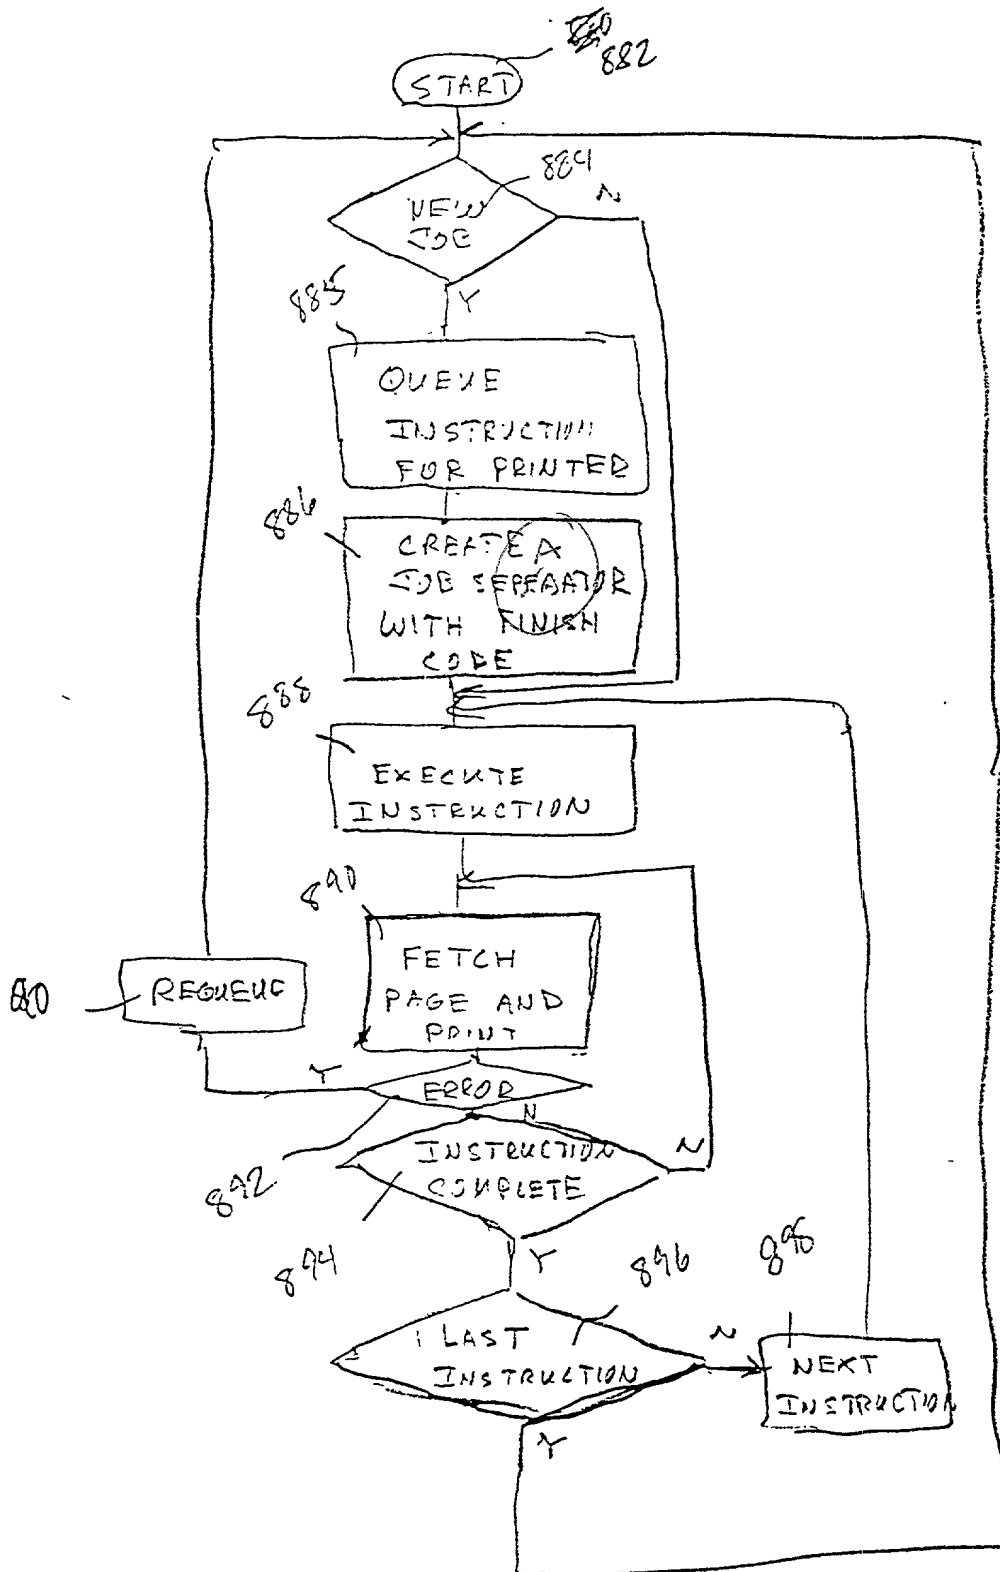 882
START
884
N
NEW
JOB
Y
885
QUEUE
INSTRUCTION
FOR PRINTED
886
CREATE A
JOB SEPERATOR
WITH FINISH
CODE
888
EXECUTE
INSTRUCTION
890
FETCH
PAGE AND
PRINT
880
REQUEUE
Y
ERROR
N
892
INSTRUCTION
COMPLETE
N
Y
894
896
898
LAST
INSTRUCTION
N
NEXT
INSTRUCTION
Y